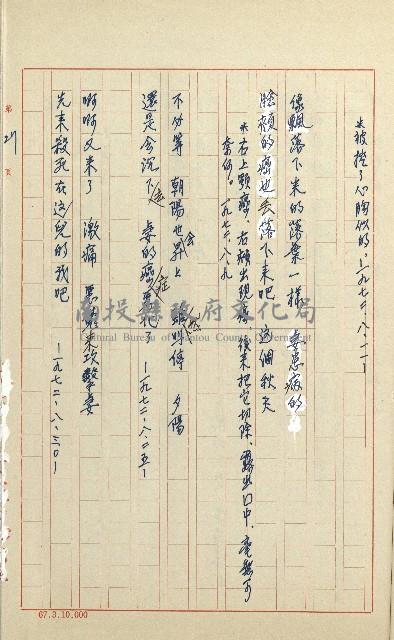 被挖了心胸似的。—一九七二、八、一一—
像飄落下來的落葉一樣 妾患病的
臉頰的癌也去落下來吧 這個秋天
※右上顎癌，右頰出現 後來把它切除，露出口中，毫無可
奈何。一九七二、八、九
不必等 朝陽也會昇上 夕陽
還是會沉下去 妾的癌症
—一九七二、八、二五—
啊啊又來了 激痛 惡 來攻擊妾
先來殺死在這兒的我吧 —一九七二、八、三〇—
第 21 頁
南投縣政府文化局
Cultural Bureau of Nantou County Government
67.3.10.000